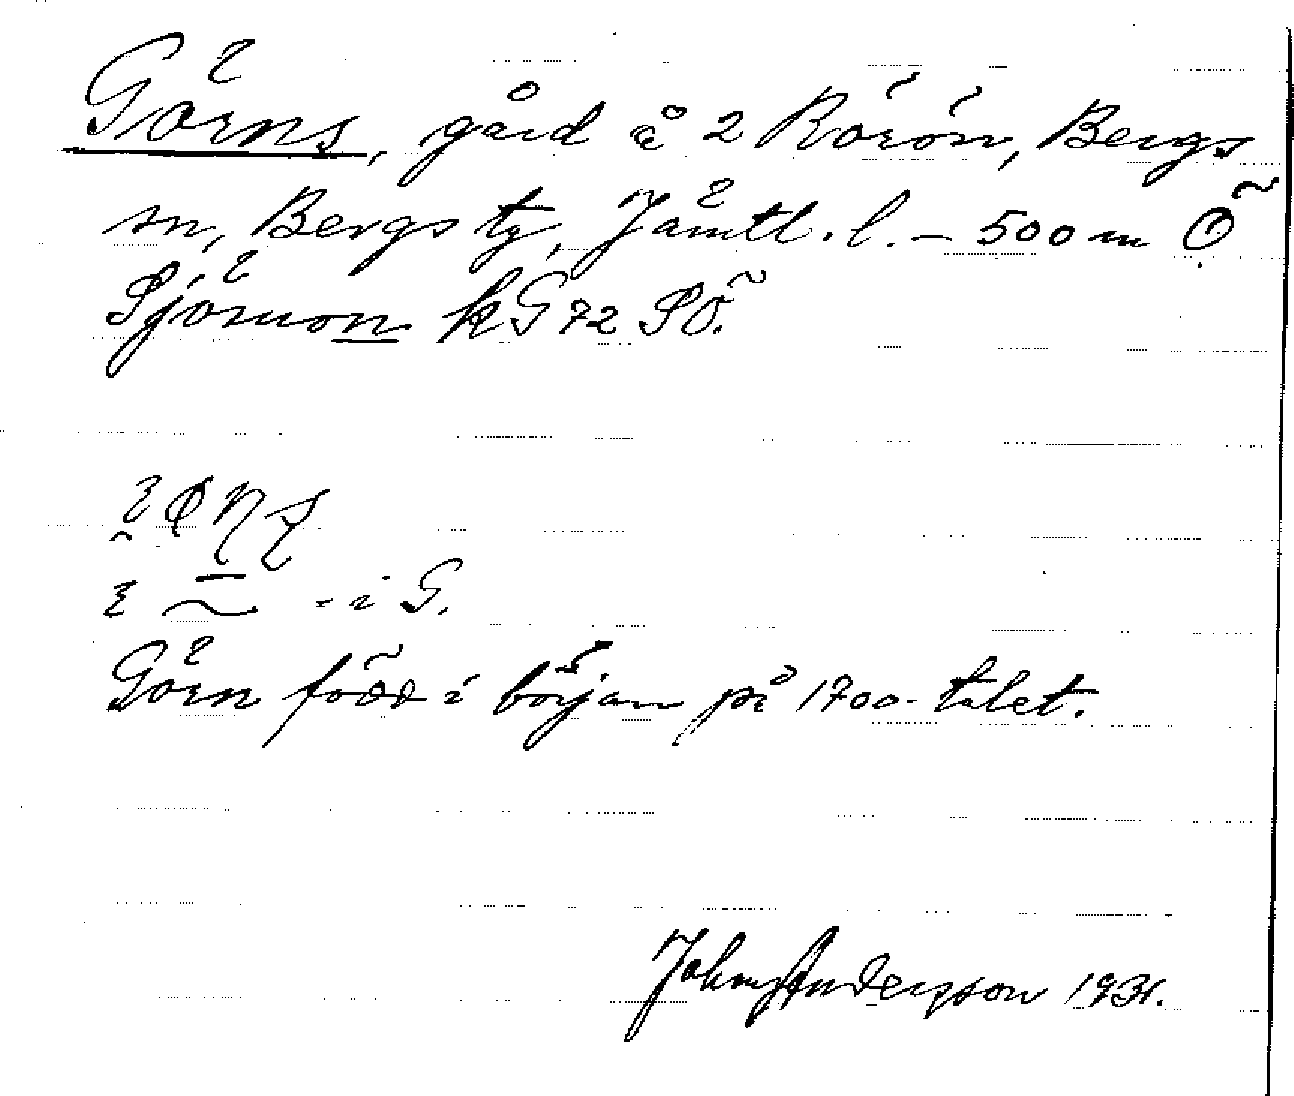 Görns, gård å 2 Rörön, Bergs
sn, Bergs tg, Jämtl. l. – 500 m Ö
Sjömon kG 72 SÖ.
- i G.
Görn född i början på 1700-talet.
Johns Andersson 1931.